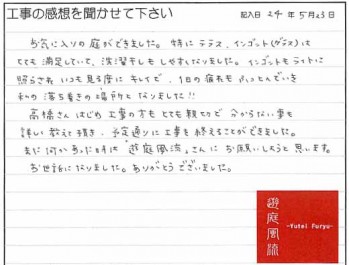 工事の感想を聞かせて下さい
記入日 24年5月23日
お気に入りの庭ができました。特にテラス、インゴット(ガラス)は
とても満足していて、洗濯干しもしやすくなりました。インゴットもライトに
照らされいつも見る度にキレイで、1日の疲れもふっとんでいき
私の落ち着きの場所となりました!!
高橋さんはじめ工事の方もとても親切で分からない事も
詳しく教えて頂き、予定通りに工事を終えることができました。
また何かあった時は"遊庭風流"さんにお願いしようと思います。
お世話になりました。ありがとうございました。
遊庭風流
-Yutei Furyu-